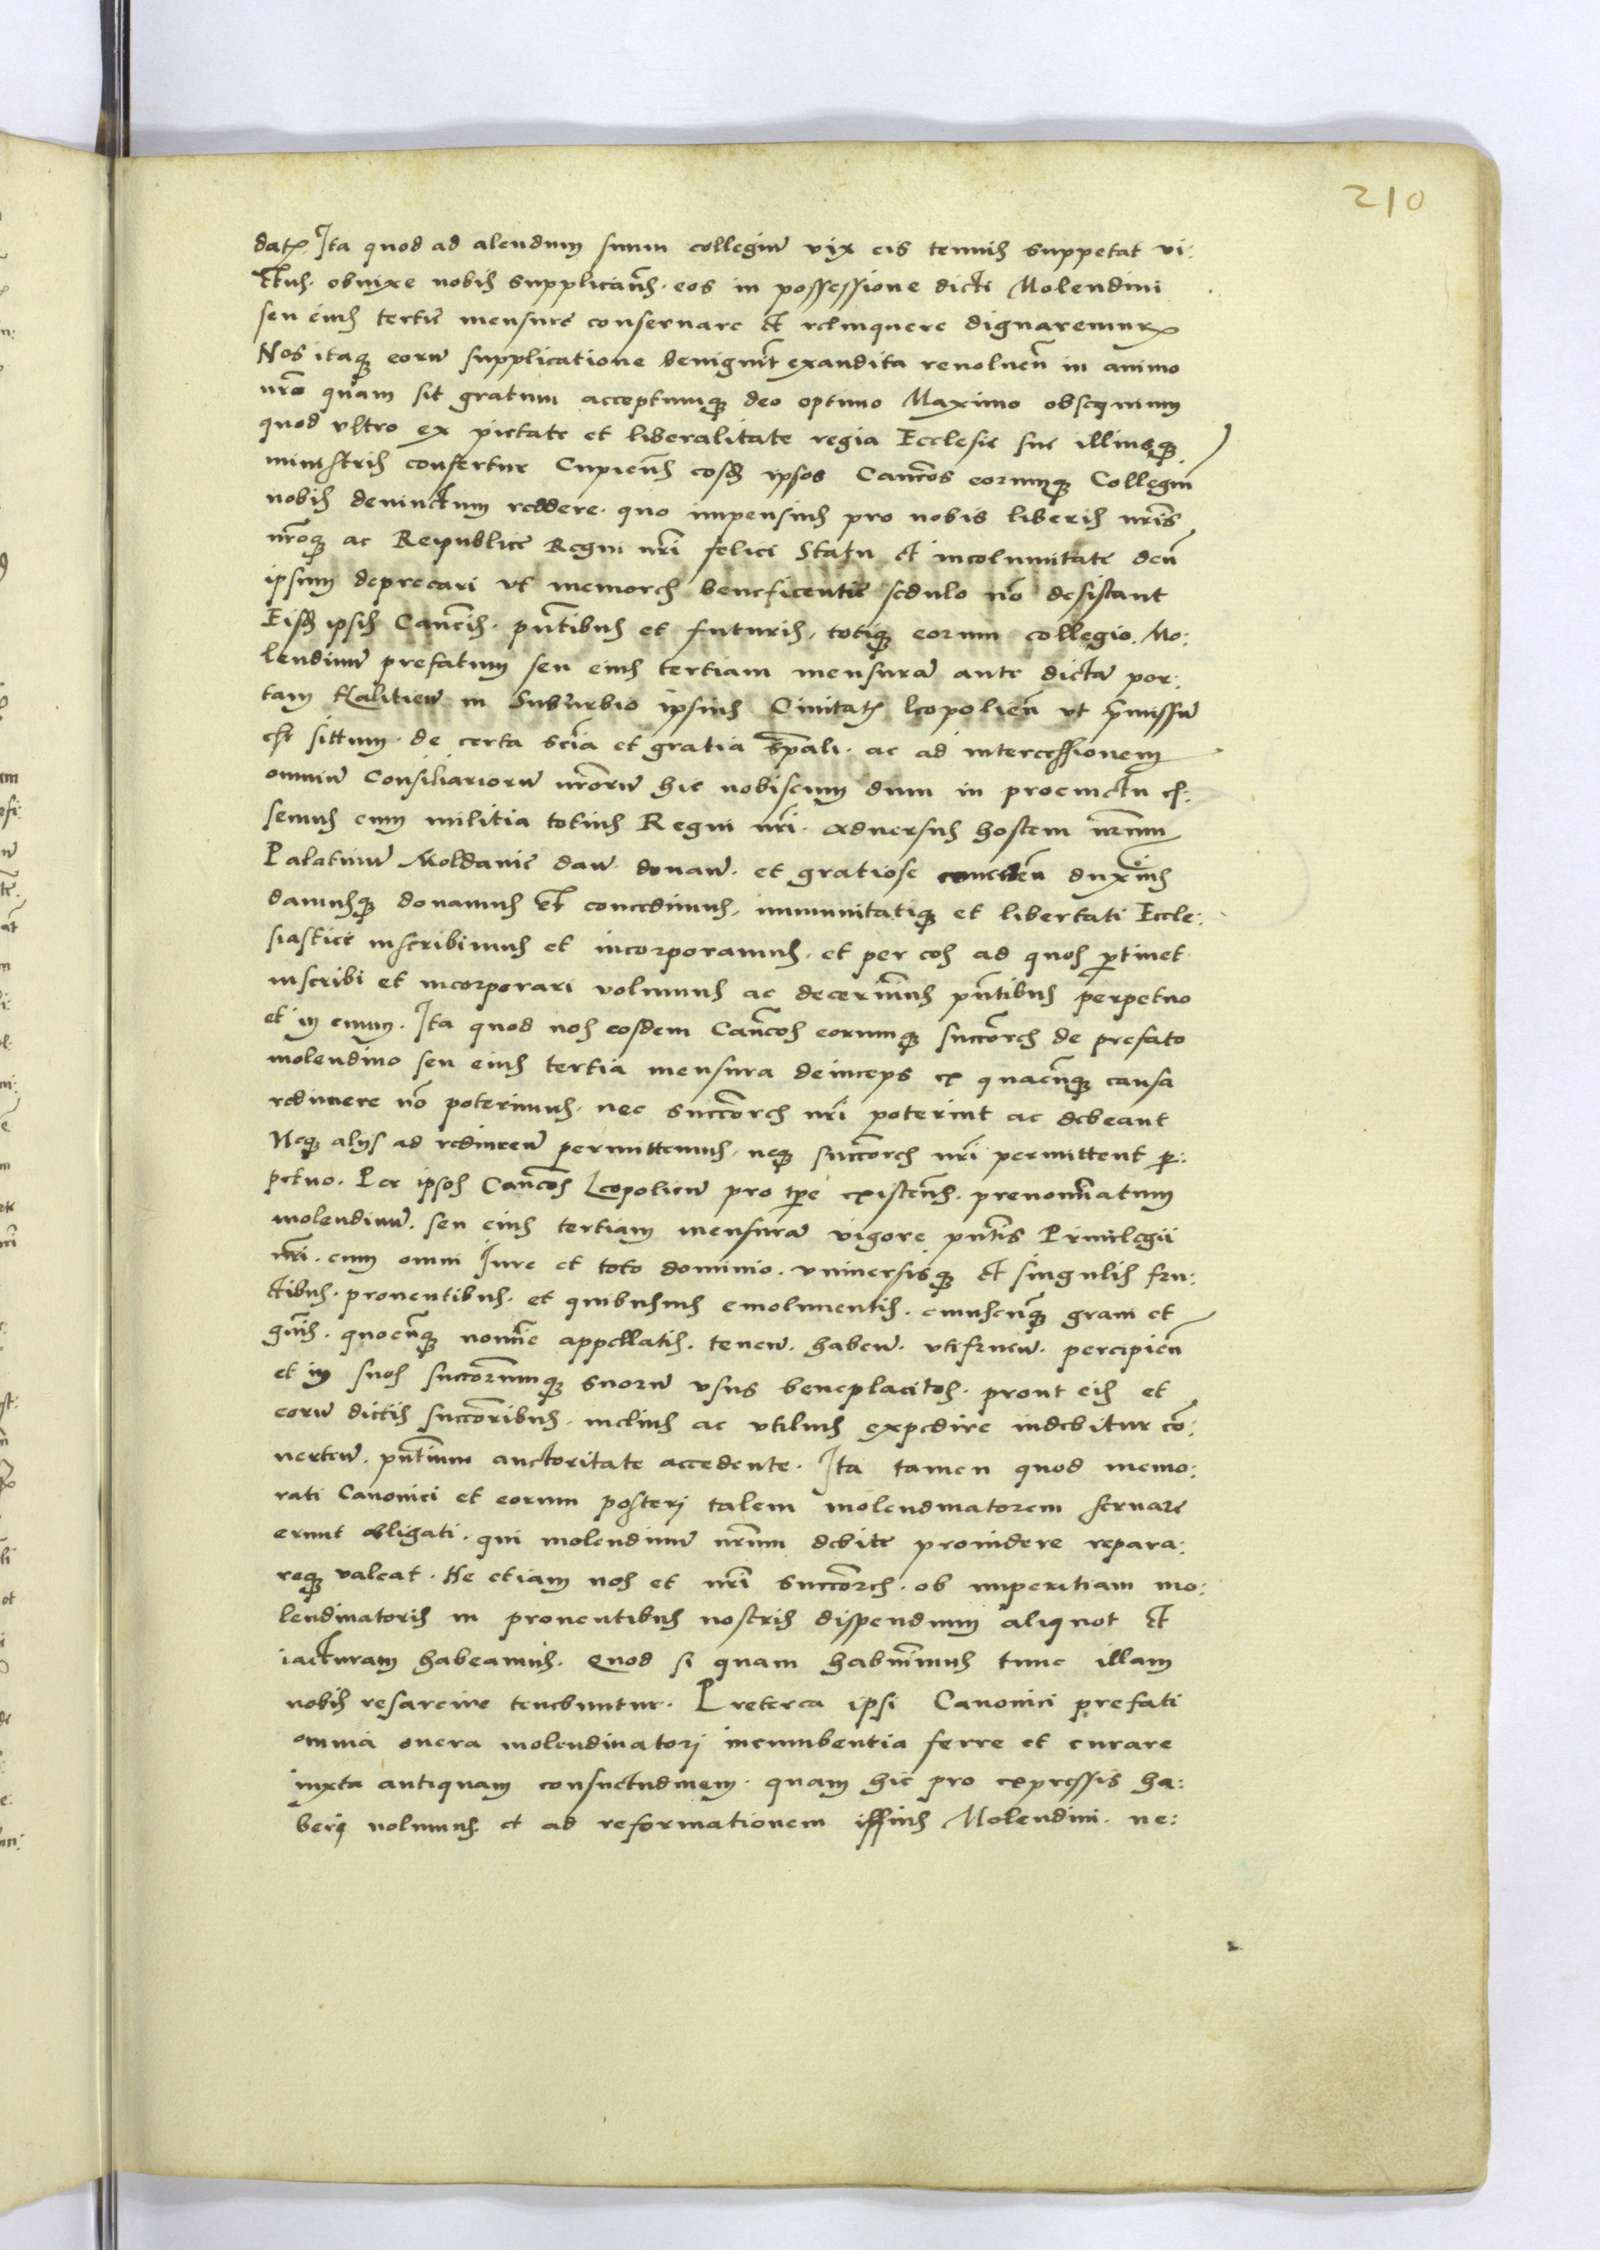 210
datꝭ Ita quod ad alendum suum collegiũ vix eis tenuis suppetat vi:
ctus. obnixe nobis supplicañs. eos in possessione dicti Molendini
seu eius tertie mensure conseruare et relinquere dignaremur
Nos itaqꝫ eorũ supplicatione benignit̃ exaudita reuoluẽn in animo
nr̃o quam sit gratum acceptumqꝫ deo optimo Maximo obsequium
quod vltro ex pietate et liberalitate regia Ecclesie sue illiusqꝫ
ministris confertur Cupieñs eosd̃ ipsos Cañcos eorumqꝫ Collegiũ
nobis deuinctum reddere. quo impensius pro nobis liberis nr̃is
nr̃oqꝫ ac Reipublice Regni nr̃i felici Statu et incolumitate deũ
ipsum deprecari vt memores beneficentie sedulo nõ desistant
Eisd̃ ipsis Cañcis. pñtibus et futuris, totiqꝫ eorum collegio. Mo:
lendinũ prefatum seu eius tertiam mensurã ante dictã por:
tam Halicieñ in Suburbio ipsius Ciuitatꝭ Leopolieñ vt p̃missũ
est sittum. de certa scĩa et gratia sp̃ali. ac ad intercessionem
omniũ Consiliariorũ nr̃orũ hic nobiscum dum in procinctu es:
semus cum militia totius Regni nr̃i. aduersus hostem nr̃um
Palatinũ Moldauie dañ. donañ. et gratiose conceden̄ duximꝰ
damusqꝫ donamus et concedimus, immunitatiqꝫ et libertati Eccle:
siastice inscribimus et incorporamus. et per eos ad quos p̱tinet
inscribi et incorporari volumus ac decernimus pñtibus perpetuo
et in euum. Ita quod nos eosdem Cañcos eorumqꝫ succ̃ores de prefato
molendino seu eius tertia mensura deinceps ex quacũqꝫ causa
redimere nõ poterimus. nec succ̃ores nr̃i poterint ac debeant
Neqꝫ alijs ad redimeñ permittemus. neqꝫ succ̃ores nr̃i permittent p̱:
petuo. Per ipsos Cañcos Leopolieñ pro tp̃e existeñs. prenominatum
molendinũ. seu eius tertiam mensurã vigore pñtis Priuilegii
nr̃i. cum omni Iure et toto dominio. vniuersisqꝫ et singulis fru:
ctibus. prouentibus. et quibusuis emolumentis. cuiuscũqꝫ grani et
gñis. quocũqꝫ nomine appellatis. teneñ. habeñ. vtifrueñ. percipieñ
et in suos succ̃orumqꝫ suorũ vsus beneplacitos. prout eis et
eorũ dictis succ̃oribus. melius ac vtilius expedire indebitur cõ:
uerteñ. pñtium auctoritate accedente. Ita tamen quod memo:
rati Canonici et eorum posteri talem molendinatorem seruare
erunt obligati. qui molendinũ nr̃um debite prouidere repara:
reqꝫ valeat. Ne etiam nos et nr̃i succ̃ores. ob imperitiam mo:
lendinatoris in prouentibus nostris dispendium aliquot et
iacturam habeamus. Quod si quam habuerimus tunc illam
nobis resarcire tenebuntur. Preterea ipsi Canonici prefati
omnia onera molendinatori incumbentia ferre et curare
iuxta antiquam consuetudinem. quam hic pro expressis ha:
beri volumus. et ad reformationem ipsius Molendini. ne: